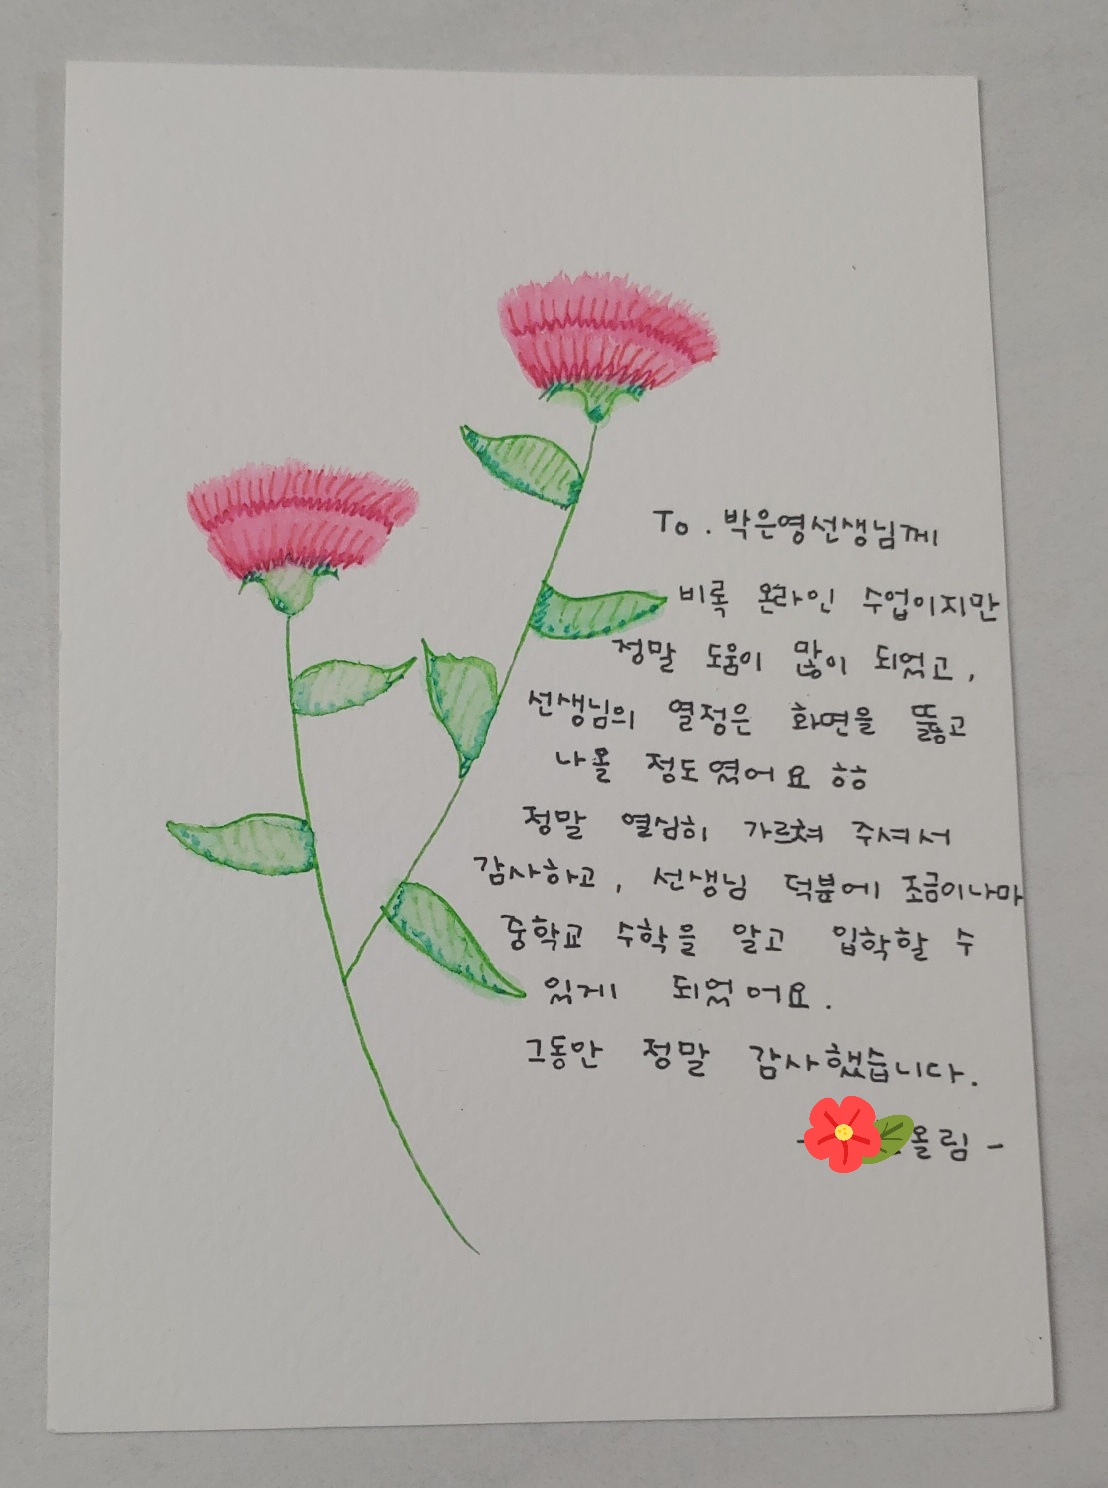 To. 박은영선생님께
비록 온라인 수업이지만
정말 도움이 많이 되었고,
선생님의 열정은 화면을 뚫고
나올 정도였어요 ㅎㅎ
정말 열심히 가르쳐 주셔서
감사하고, 선생님 덕분에 조금이나마
중학교 수학을 알고 입학할 수
있게 되었어요.
그동안 정말 감사했습니다.
- 올림 -